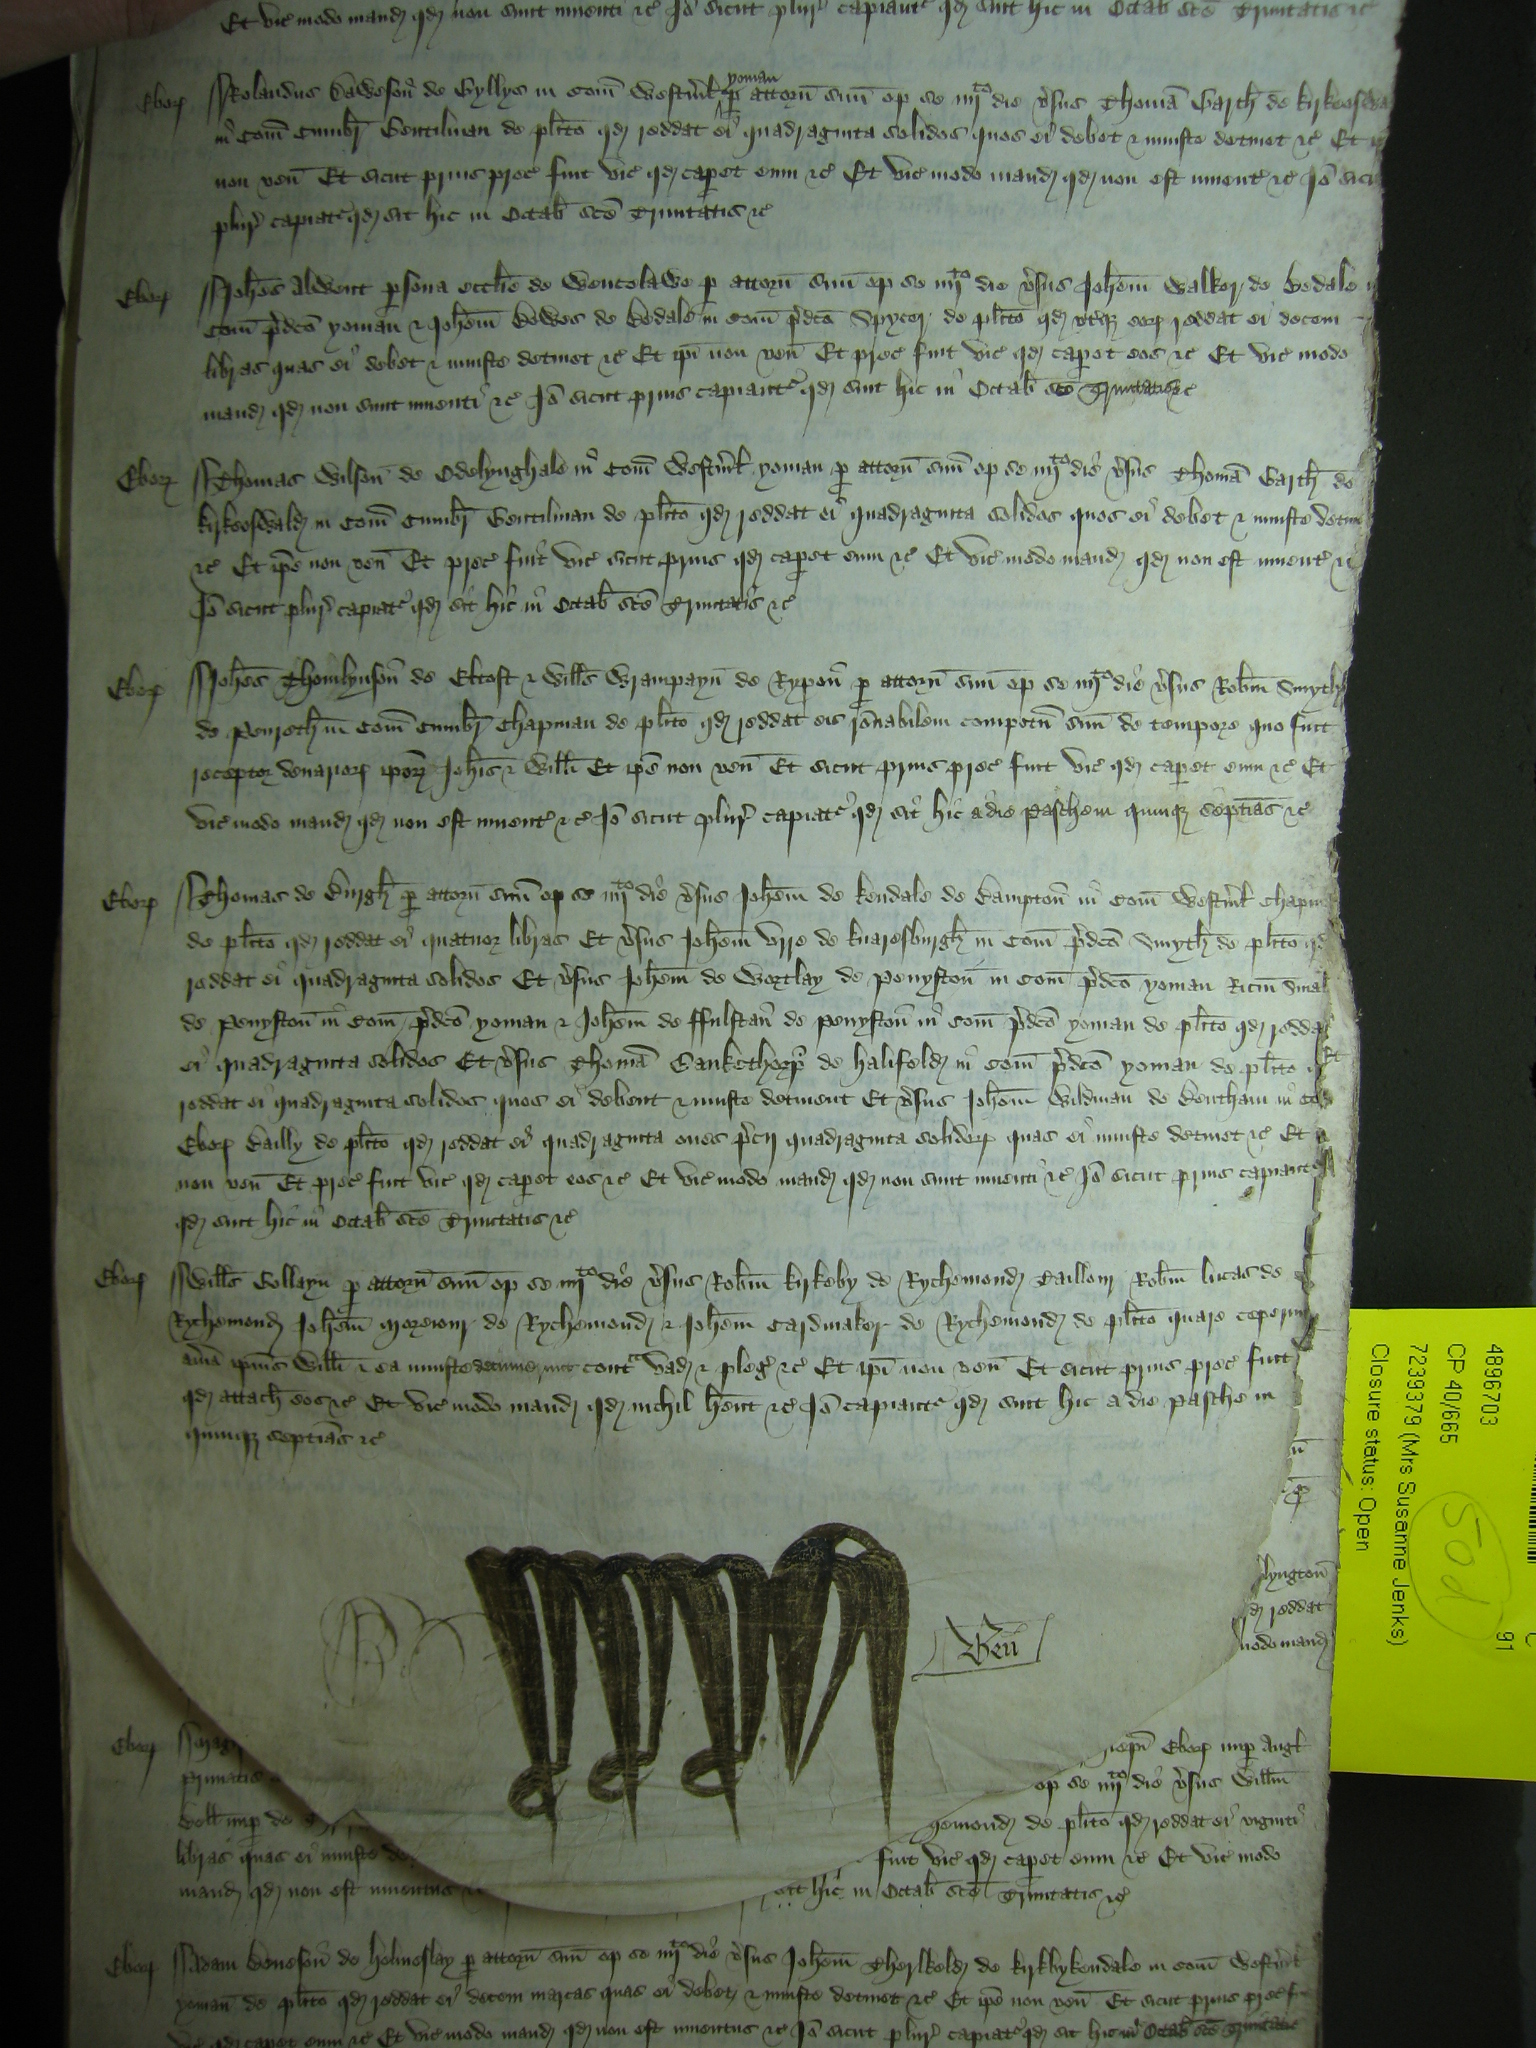 Et vic̄ modo mand̄ qd̄ non sunt inventi &c̄ Iō sicut plur̄ capiant̄ qd̄ sint hic in Octab̄ sc̄e Trinitatis &c̄
Ebor̄ Rolandus Daweson̄ de Gyllys in Com̄ Westm̄ł yoman p̱ attorn̄ suū op̱ se iiij^to die v̄sus Thomā Garth̄ de Kirkeoswald
in Com̄ Cumbr̄ Gentilman de pl̄ito qd̄ reddat ei quadraginta solidos quos ei debet & iniuste detinet &c̄ Et
non ven̄ Et sicut prius prec̄ fuit vic̄ qd̄ cap̱et eum &c̄ Et vic̄ modo mand̄ qd̄ non est invent̄ &c̄ Iō sicut
plur̄ capiat̄ qd̄ sit hic in Octab̄ sc̄e Trinitatis &c̄
Ebor̄ Joh̄es Alwent p̱sona eccl̄ie de Wencelawe p̱ attorn̄ suū op̱ se iiij^to die v̄sus Joh̄em Walker de Bedale
Com̄ p̄dc̄o yoman & Joh̄em Dawes de Bedale in Com̄ p̄dc̄o Spycer de pl̄ito qd̄ ut̄q̄ eor̄ reddat ei decem
libras quas ei debet & iniuste detinet &c̄ Et ip̄i non ven̄ Et prec̄ fuit vic̄ qd̄ cap̱et eos &c̄ Et vic̄ modo
mand̄ qd̄ non sunt inventi &c̄ Iō sicut prius capiant̄ qd̄ sint hic in Octab̄ sc̄e Trinitatis &c̄
Ebor̄ Thomas Wilson̄ de Odelynghale in Com̄ Westm̄ł yoman p̱ attorn̄ suū op̱ se iiij^to die v̄sus Thomā Garth̄ de
Kirkeoswald̄ in Com̄ Cumbr̄ Gentilman de pl̄ito qd̄ reddat ei quadraginta solidos quos ei debet & iniuste detinet
&c̄ Et ip̄e non ven̄ Et prec̄ fuit vic̄ sicut prius qd̄ cap̱et eum &c̄ Et vic̄ modo mand̄ qd̄ non est invent̄ &c̄
Iō sicut plur̄ capiat̄ qd̄ sit hic in Octab̄ sc̄e Trinitatis &c̄
Ebor̄ Joh̄es Thomlynson̄ de Eltoft & Will̄s Wrampayn̄ de Rypon̄ p̱ attorn̄ suū op̱ se iiij^to die v̄sus Rob̄m Smyth
de Penreth̄ in Com̄ Cumbr̄ Chapman de pl̄ito qd̄ reddat eis rōnabilem compotū suū de tempore quo fuit
receptor denarior̄ ip̄or̄ Joh̄is & Will̄i Et ip̄e non ven̄ Et sicut prius prec̄ fuit vic̄ qd̄ cap̱et eum &c̄ Et
vic̄ modo mand̄ qd̄ non est invent̄ &c̄ Iō sicut plur̄ capiat̄ qd̄ sit hic a die Pasche in quinq̄ septīas &c̄
Ebor̄ Thomas de Burgh̄ p̱ attorn̄ suū op̱ se iiij^to die v̄sus Joh̄em de Kendale de Bampton̄ in Com̄ Westm̄ł Chapm
de pl̄ito qd̄ reddat ei quatuor libras Et v̄sus Joh̄em Urre de Knaresburgh̄ in Com̄ p̄dc̄o Smyth̄ de pl̄ito qd̄
reddat ei quadraginta solidos Et v̄sus Joh̄em de Wortlay de Penyston̄ in Com̄ p̄dc̄o yoman Ricm̄ Smal
de Penyston̄ in Com̄ p̄dc̄o yoman & Joh̄em de ffulstan̄ de Penyston̄ in Com̄ p̄dc̄o yoman de pl̄ito qd̄ reddat
ei quadraginta solidos Et v̄sus Thomā Cankethorp̄ de Halifeld̄ in Com̄ p̄dc̄o yoman de pl̄ito
reddat ei quadraginta solidos quos ei debent & iniuste detinent Et v̄sus Joh̄em Wildman de Bentham in
Ebor̄ Bailly de pl̄ito qd̄ reddat ei quadraginta oves p̄cij quadraginta solidor̄ quas ei iniuste detinet &c̄ Et
non ven̄ Et prec̄ fuit vic̄ qd̄ cap̱et eos &c̄ Et vic̄ modo mand̄ qd̄ non sunt inventi &c̄ Iō sicut prius capiant̄
qd̄ sint hic in Octab̄ sc̄e Trinitatis &c̄
Ebor̄ Will̄s Collayn p̱ attorn̄ suū op̱ se iiij^to die v̄sus Rob̄m Kirkeby de Rychemond̄ Taillour Rob̄m Lucas de
Rychemond̄ Joh̄em Morerour de Rychemond̄ & Joh̄em Cardmaker de Rychemond̄ de pl̄ito quare ceperunt
av̄ia ip̄ius Will̄i & ea iniuste detinuerunt cont^a vad̄ & pleḡ &c̄ Et ip̄i non ven̄ Et sicut prius prec̄ fuit
qd̄ attach̄ eos &c̄ Et vic̄ modo mand̄ qd̄ nichil h̄ent &c̄ Iō capiant̄ qd̄ sint hic a die Pasche in
quinq̄ septīas &c̄
lyngton̄
qd̄ reddat
modo mand̄
Breū
Ebor̄ Maḡ Ebor̄ nup̱ Angł
primatis op̱ se iiij^to die v̄sus Will̄m
Well̄ nup̱ de gemond̄ de pl̄ito qd̄ reddat ei viginti
libras quas ei iniuste de fuit vic̄ qd̄ cap̱et eum &c̄ Et vic̄ modo
mand̄ qd̄ non est inventus &c̄ sit hic in Octab̄ sc̄e Trinitatis &c̄
Ebor̄ Adam Benson̄ de Helmeslay p̱ attorn̄ suū op̱ se iiij^to die v̄sus Joh̄em Therlkeld̄ de Kirkbykendale in Com̄ Westm̄ł
yoman̄ de pl̄ito qd̄ reddat ei decem marcas quas ei debet & iniuste detinet &c̄ Et ip̄e non ven̄ Et sicut prius prec̄
vic̄ qd̄ cap̱et eum &c̄ Et vic̄ modo mand̄ qd̄ non est inventus &c̄ Iō sicut plur̄ capiat̄ qd̄ sit hic in Octab̄ sc̄e Trinitatis
4896703
CP 40/665
7239379 (Mrs Susanne Jenks)
Closure status: Open
50d
91